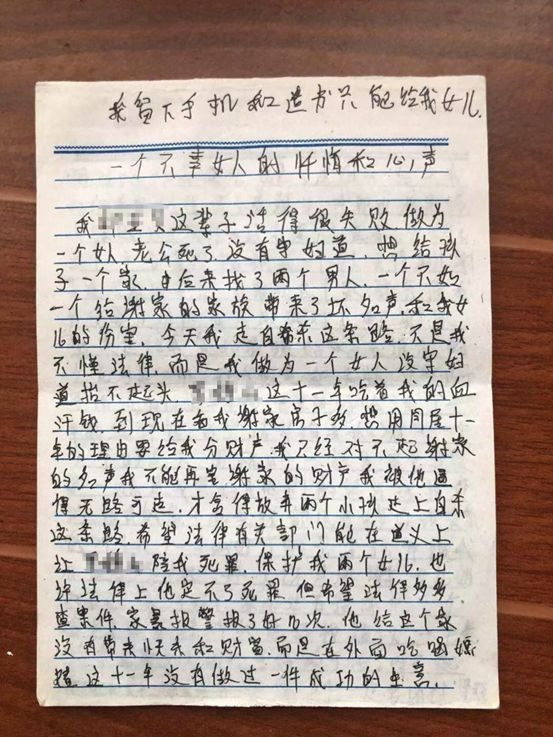 我留下手机和遗书只能给我女儿.
一个不幸女人的忏悔和心声
我 这辈子活得很失败.做为
一个女人,老公死了没有守妇道,想给孩
子一个家,中后来找了两个男人,一个不如
一个给谢家的家族带来了坏名声,和我女
儿的伤害,今天我走自杀这条路,不是我
不懂法律,而是我做为一个女人没守妇
道抬不起头, 这十一年吃着我的血
汗钱,到现在看我谢家房子多,想用同居十一
年的理由要给我分财产,我已经对不起谢家
的名声我不能再害谢家的财产我被他逼
得无路可走,才舍得放弃两个小孩走上自杀
这条路希望法律有关部门能在道义上
让 陪我死罪,保护我两个女儿,也
许法律上他定不了死罪,但希望法律多多,
查案件,家暴报警报了好几次,他给这个家
没有带来快乐和财富,而是在外面吃喝嫖
赌,这十一年没有做过一件成功的生意,